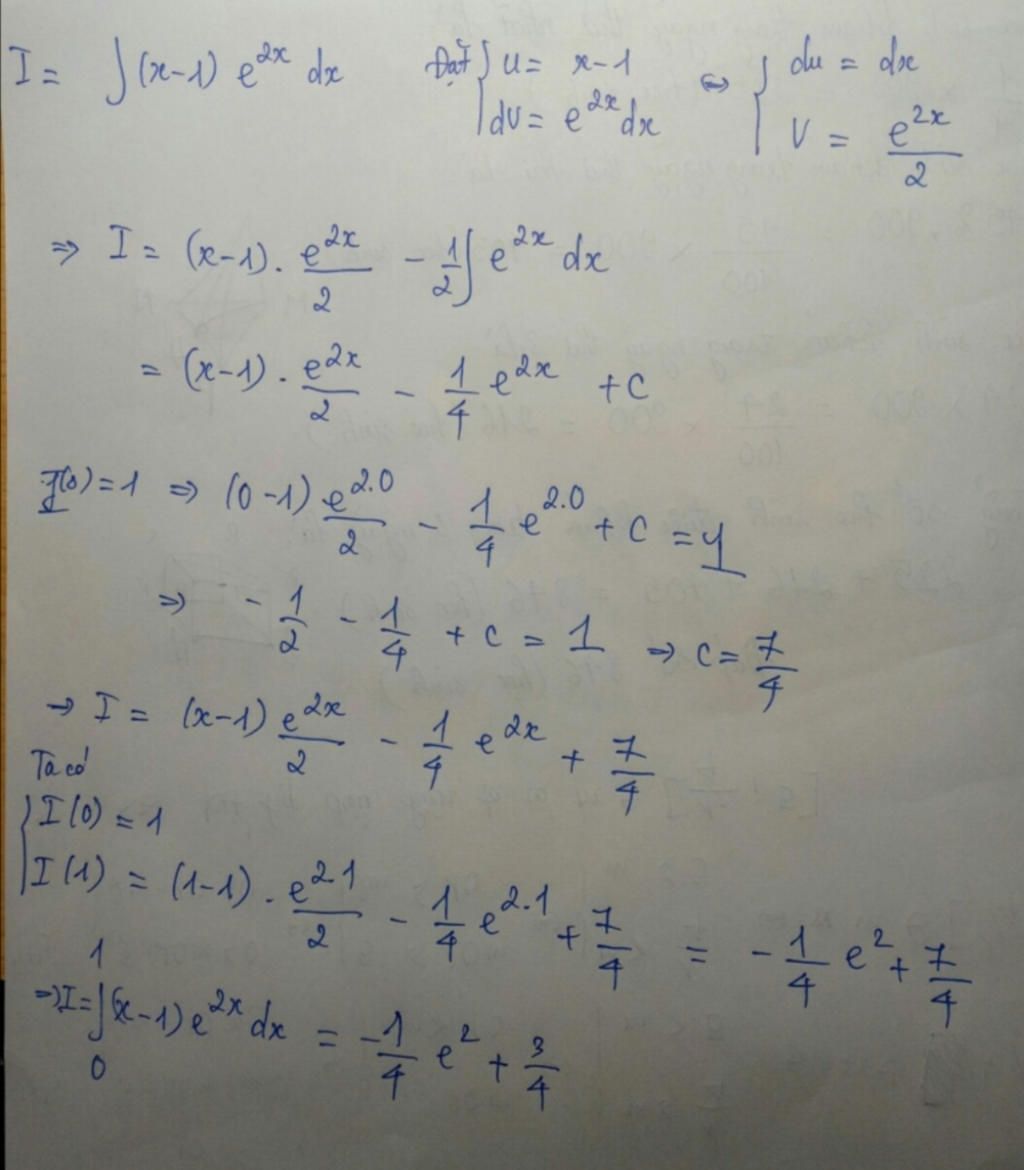 I = ∫(x-1) e^{2x} dx Đặt { u = x-1 ⇔ { du = dx
dv = e^{2x}dx v = e^{2x}/2
⇒ I = (x-1). e^{2x}/2 - 1/2 ∫ e^{2x} dx
= (x-1). e^{2x}/2 - 1/4 e^{2x} + C
I(0) = 1 ⇒ (0-1) e^{2.0}/2 - 1/4 e^{2.0} + C = 1
⇒ -1/2 - 1/4 + C = 1 → C = 7/4
→ I = (x-1) e^{2x}/2 - 1/4 e^{2x} + 7/4
Ta có
{ I(0) = 1
I(1) = (1-1). e^{2.1}/2 - 1/4 e^{2.1} + 7/4 = -1/4 e^2 + 7/4
⇒ I = ∫_0^1 (x-1) e^{2x} dx = -1/4 e^2 + 3/4